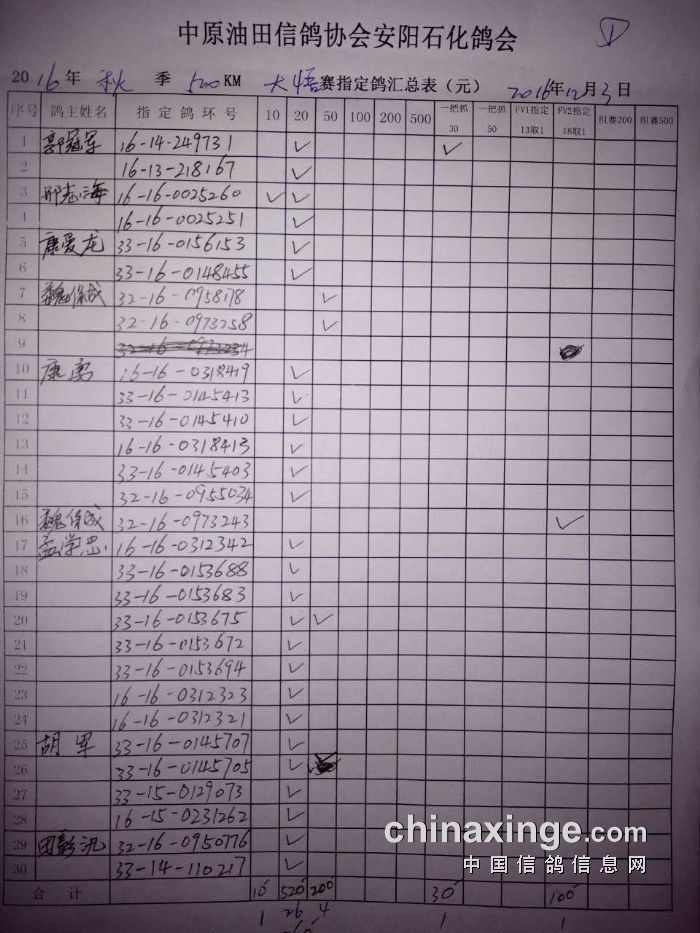 中原油田信鸽协会安阳石化鸽会 ①
2016年 秋 季 500KM 大悟赛指定鸽汇总表（元） 2016年12月3日
序号 鸽主姓名 指定鸽环号 10 20 50 100 200 500 一把抓30 一把抓50 FV1指定13取1 FV2指定18取1 组赛200 组赛500
1 郭冠军 16-14-249731 ✓ ✓
2 16-13-218167 ✓
3 邢志海 16-16-0025260 ✓ ✓
4 16-16-0025251 ✓
5 康爱龙 33-16-0156153 ✓
6 33-16-0148455 ✓
7 魏保成 32-16-0958178 ✓
8 32-16-0973258 ✓
9 32-16-0973234
10 康勇 16-16-0318419 ✓
11 33-16-0145413 ✓
12 33-16-0145410 ✓
13 16-16-0318413 ✓
14 33-16-0145403 ✓
15 32-16-0955034 ✓
16 魏保成 32-16-0973243 ✓
17 孟学忠 16-16-0312342 ✓
18 33-16-0153688 ✓
19 33-16-0153683 ✓
20 33-16-0153675 ✓ ✓
21 33-16-0153672 ✓
22 33-16-0153694 ✓
23 16-16-0312323 ✓
24 16-16-0312321 ✓
25 胡军 33-16-0145707 ✓
26 33-16-0145705 ✓ ✓
27 33-15-0129073 ✓
28 16-15-0231262 ✓
29 田彭汎 32-16-0950776 ✓
30 33-14-110217 ✓
合计 10 520 200 30 100
1 26 4 1 1
chinaxinge.com
中国信鸽信息网